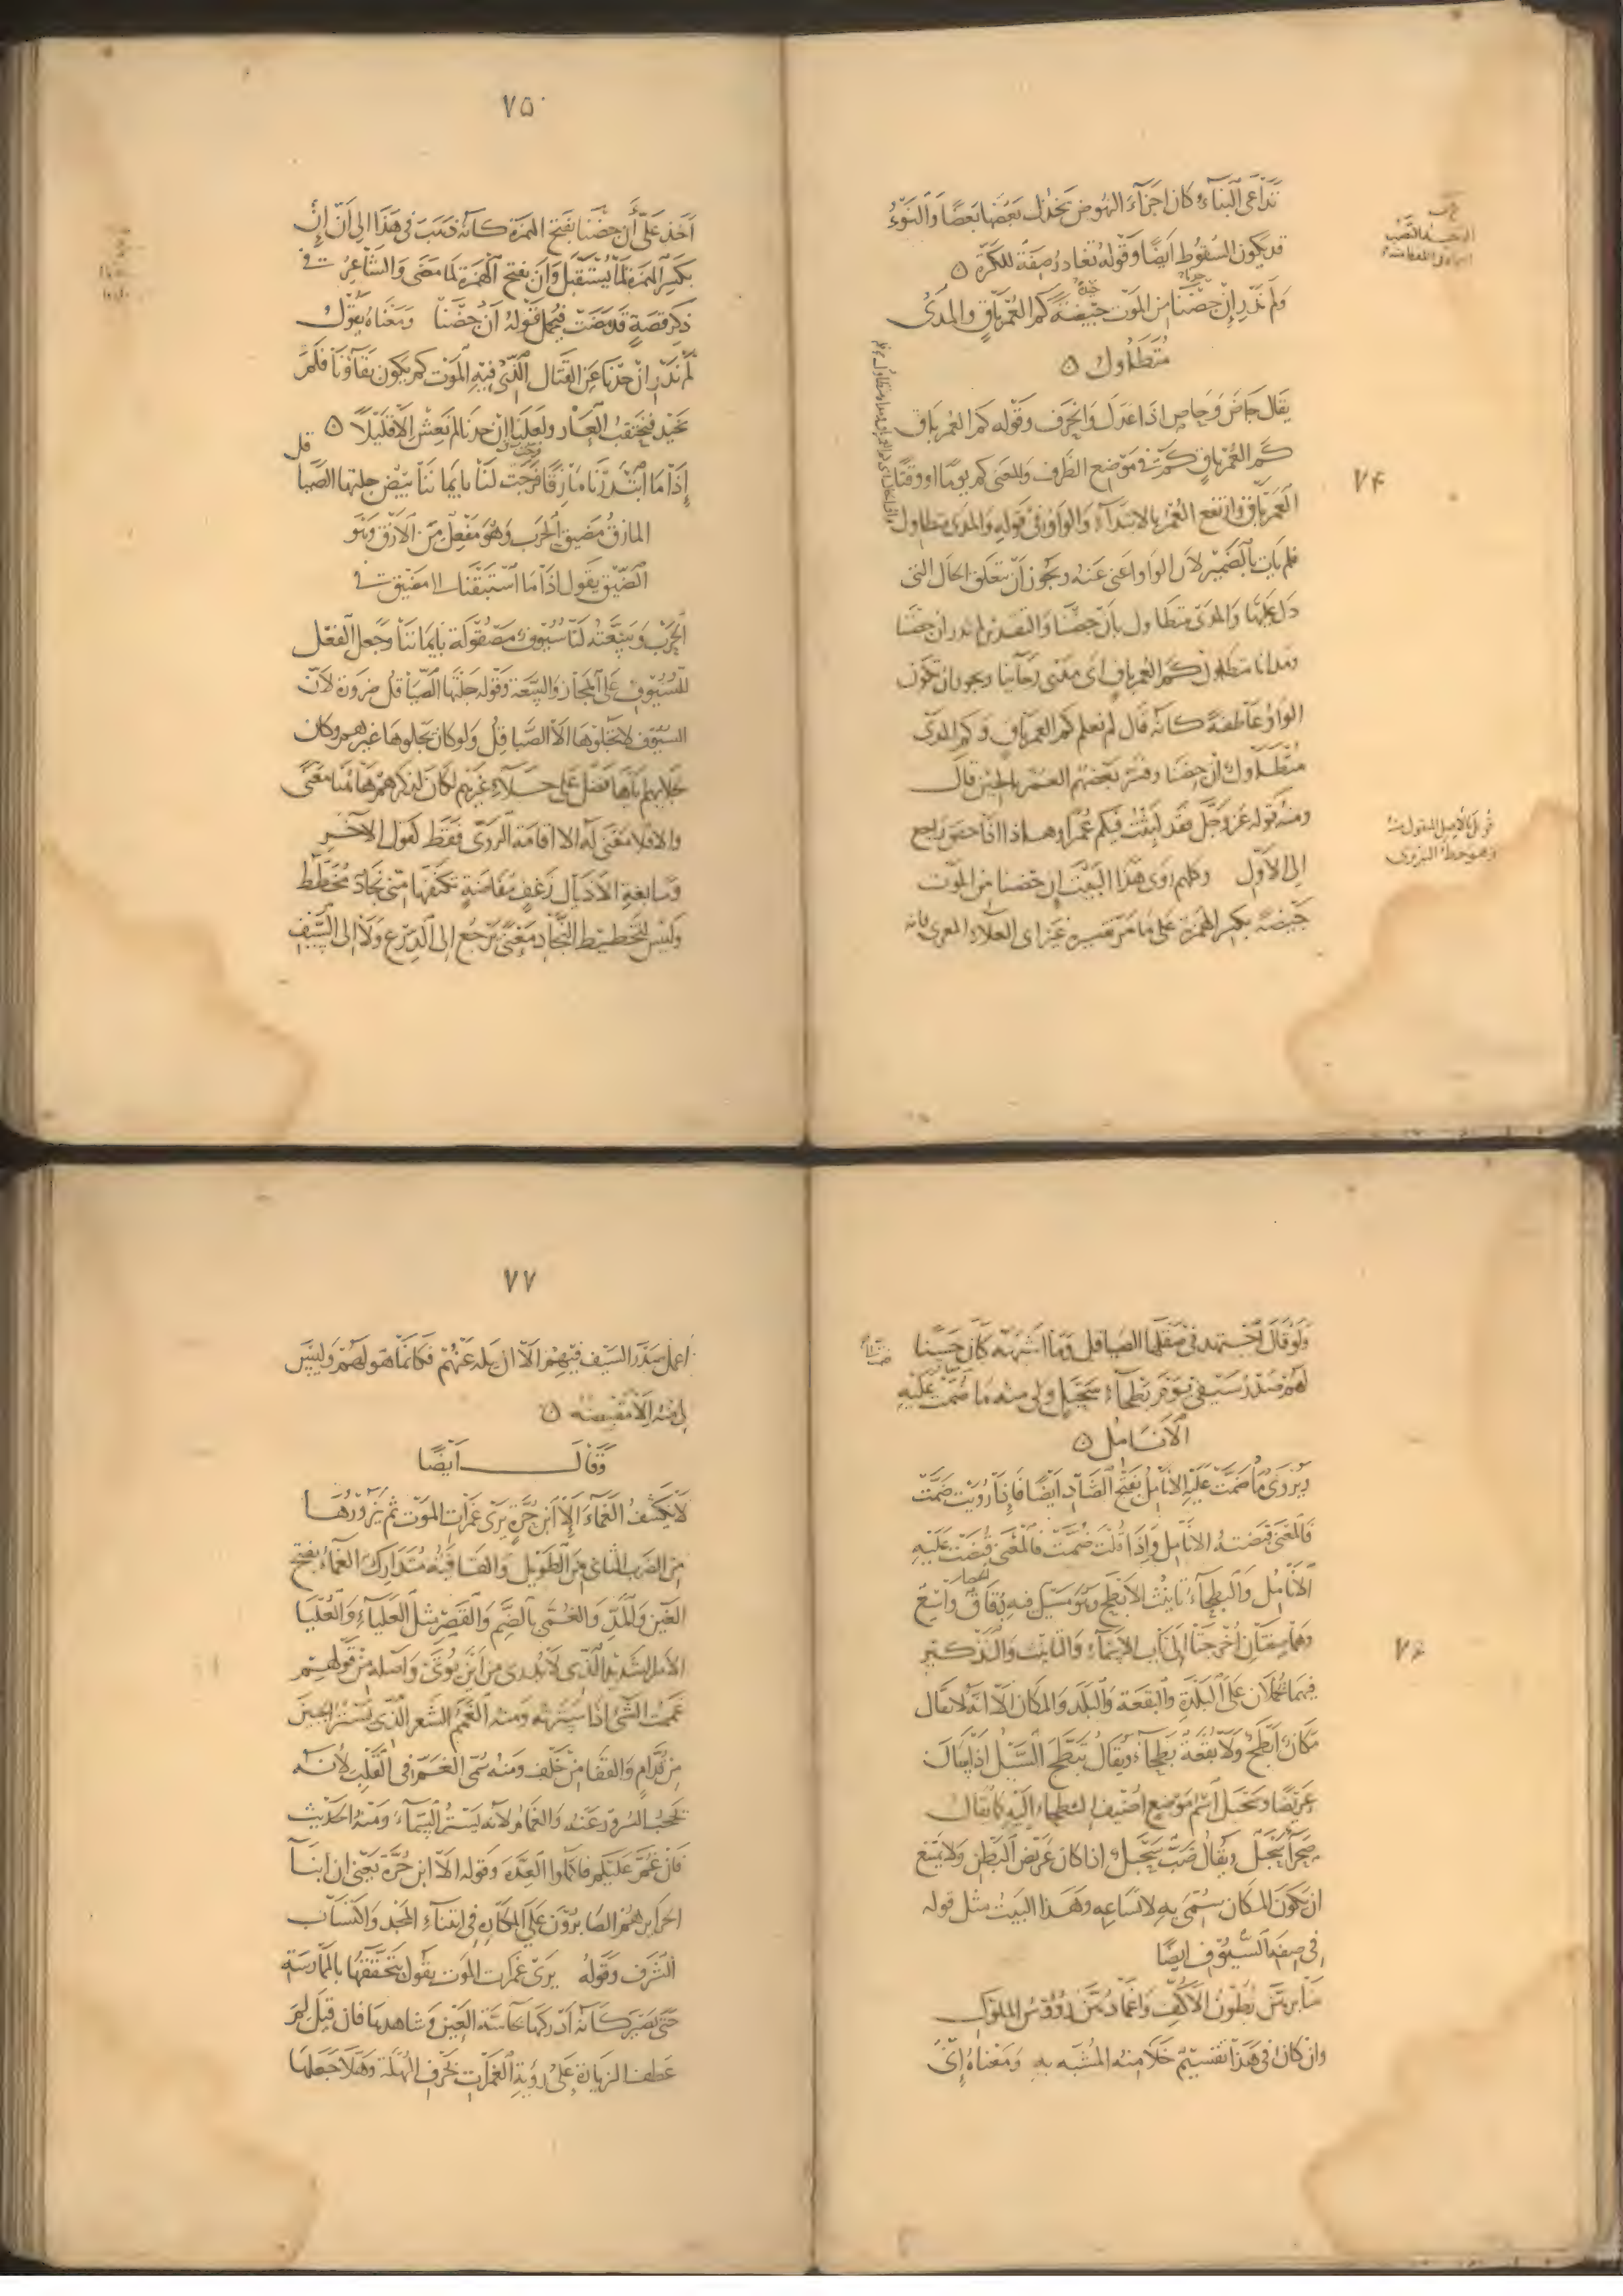 تداعى البناء كان اجزاء النهوض يخذل بعضها بعضا والنوء
قد يكون السقوط ايضا وقوله تغادر صفة للكرة
ولم ندر إن جضنا من الموت جيضة كم العمر باق والمدى
متطاول
يقال جاض وحاص اذا عدل وانحرف وقوله كم العمر باق
كم العمر باق كم في موضع الظرف والمعنى كم يوما او وقتا
العمر باق وارتفع العمر بالابتداء والواو في قوله والمدى متطاول
فلم يات بالضمير لان الواو اغنى عنه ويجوز ان تتعلق الحال التى
دل عليها والمدى متطاول بان جضنا والتقدير لم ندر ان جضنا
ومدانا متطاول كم العمر باق اى معنى رجائنا ويجوز ان تكون
الواو عاطفة كانه قال لم نعلم كم العمر باق وكم المدى
متطاول ان جضنا وفسر بعضهم العمر بالحين قال
ومنه قوله عز وجل فقد لبثت فيكم عمرا وهذا اذا حقق راجع
الى الاول وكلهم روى هذا البيت ان جضنا من الموت
جيضة بكسر الهمزة على ما مر تفسيره غير ابى العلاء المعرى فانه
٧٤
٧٥
اخذ على أن جضنا بفتح الهمزة كانه ذهب فى هذا الى ان إن
بكسر الهمزة لما يستقبل وان بفتح الهمزة لما مضى والشاعر فى
ذكر قصة قد مضت فيحمل قوله أن جضنا ومعناه يقول
لم ندر ان حدنا عن القتال الذى فيه الموت كم يكون بقاؤنا فلم
نحيد فنحتقب العار ولعلنا إن حدنا لم نعش الا قليلا
إذا ما ابتدرنا مازقا فرجت لنا بايماننا بيض جلتها الصيا
قل
المازق مضيق الحرب وهو مفعل من الازق وهو
الضيق يقول اذا ما استبقنا الى مضيق فى
الحرب وسعته لنا سيوف مصقولة بايماننا وجعل الفعل
للسيوف على المجاز والسعة وقوله جلتها الصياقل ضرورة لان
السيوف لا يجلوها الا الصياقل ولو كان يجلوها غيرهم وكان
لجلائهم اياها فضل على جلاء غيرهم لكان لذكرهم هاهنا معنى
والا فلا معنى له الا اقامة الروى فقط كقول الآخر
وسابغة الاذيال زغف مفاضة تكنفها منى نجاد مخطط
وليس لتخطيط النجاد معنى يرجع الى الدرع ولا الى السيف
ولو قال اجتهد فى صقلها الصياقل وما اشبهه كان حسنا
لهم صدر سيفى يوم بطحاء سحبل ولى منه ما ضمت عليه
الانامل
ويروى ما ضمت عليه الانامل بفتح الضاد ايضا فاذا رويت ضمت
فالمعنى قبضته الانامل واذا قلت ضمت فالمعنى قبضت عليه
الانامل والبطحاء تانيث الابطح وهو مسيل فيه دقاق واسع
وهما صفتان اخرجتا الى باب الاسماء والتانيث والتذكير
فيهما يحملان على البلدة والبقعة والبلد والمكان الا انه لا يقال
مكان ابطح ولا بقعة بطحاء ويقال تبطح السيل اذا سال
عريضا وسحبل اسم موضع اضيف البطحاء اليه كما يقال
صحراء سحبل ويقال ضب سحبل اذا كان عريض البطن ولا يمتنع
ان يكون المكان سمى به لاتساعه وهذا البيت مثل قوله
فى صفة السيوف ايضا
منابرهن بطون الاكف واغمادهن رؤوس الملوك
وان كان فى هذا تقسيم خلا منه المشبه به ومعناه إنى
٧٦
٧٧
اعمل صدر السيف فيهم الا ان يلد عنهم فكانما هو لهم وليس
لى منه الا مقبضه
وقال ايضا
لا يكشف الغماء إلا ابن حرة يرى غمرات الموت ثم يزورها
من الضرب الثانى من الطويل والقافية متدارك الغماء بفتح
الغين والمد والغمى بالضم والقصر مثل العلياء والعليا
الامر الشديد الذى لا يدرى من اين يؤتى واصله من قولهم
غممت الشئ اذا سترته ومنه الغمم الشعر الذى يستر الجبين
من قدام والقفا من خلف ومنه سمى الغم فى القلب لانه
يحجب السرور عنه والغمام لانه يستر السماء ومنه الحديث
فان غم عليكم فاكملوا العدة وقوله الا ابن حرة يعنى ان ابنا
الحراير هم الصابرون على المكاره فى ابتناء المجد واكتساب
الشرف وقوله يرى غمرات الموت يقول يتحققها بالممارسة
حتى يصير كانه ادركها بحاسة العين وشاهدها فان قيل لم
عطف الزيارة على رؤية الغمرات بحرف المهلة وهلا جعلها